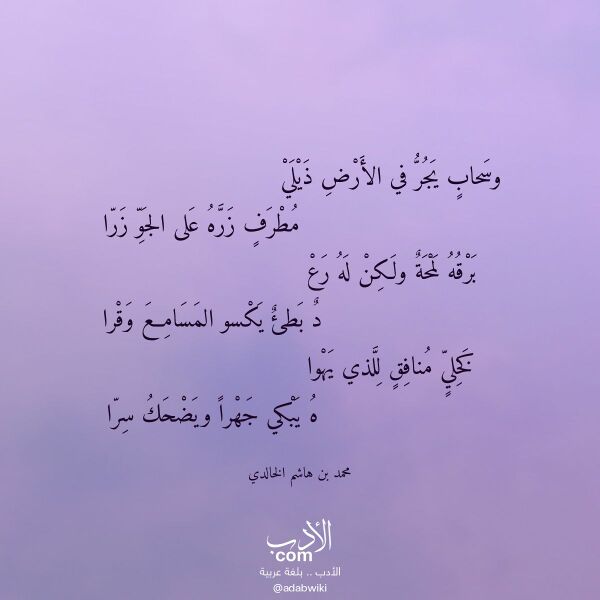 وسَحابٍ يَجُرُّ في الأَرْضِ ذَيْلَيْ
مُطْرَفٍ زَرَّهُ عَلى الجَوِّ زَرّا
بَرْقُهُ لَمْحَةٌ ولَكِنْ لَهُ رَعْ
دٌ بَطئٌ يَكْسو المَسَامِعَ وَقْرا
كَخِلِيٍّ مُنافِقٍ لِلَّذي يَهْوا
هُ يَبْكي جَهْراً ويَضْحَكُ سِرّا
محمد بن هاشم الخالدي
الأدب
.com
الأدب .. بلغة عربية
@adabwiki